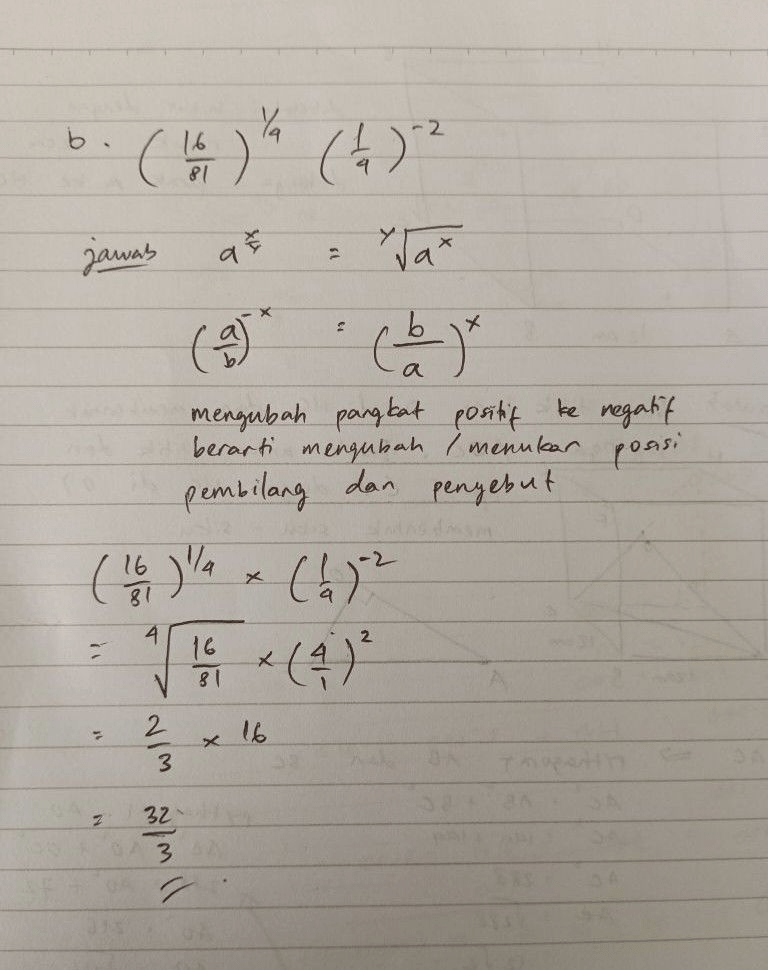 b. (16/81)^1/4 (1/4)^-2
jawab a^x/y = y√a^x
(a/b)^-x = (b/a)^x
mengubah pangkat positif ke negatif
berarti mengubah / menukar posisi
pembilang dan penyebut
(16/81)^1/4 × (1/4)^-2
= 4√16/81 × (4/1)^2
= 2/3 × 16
= 32/3